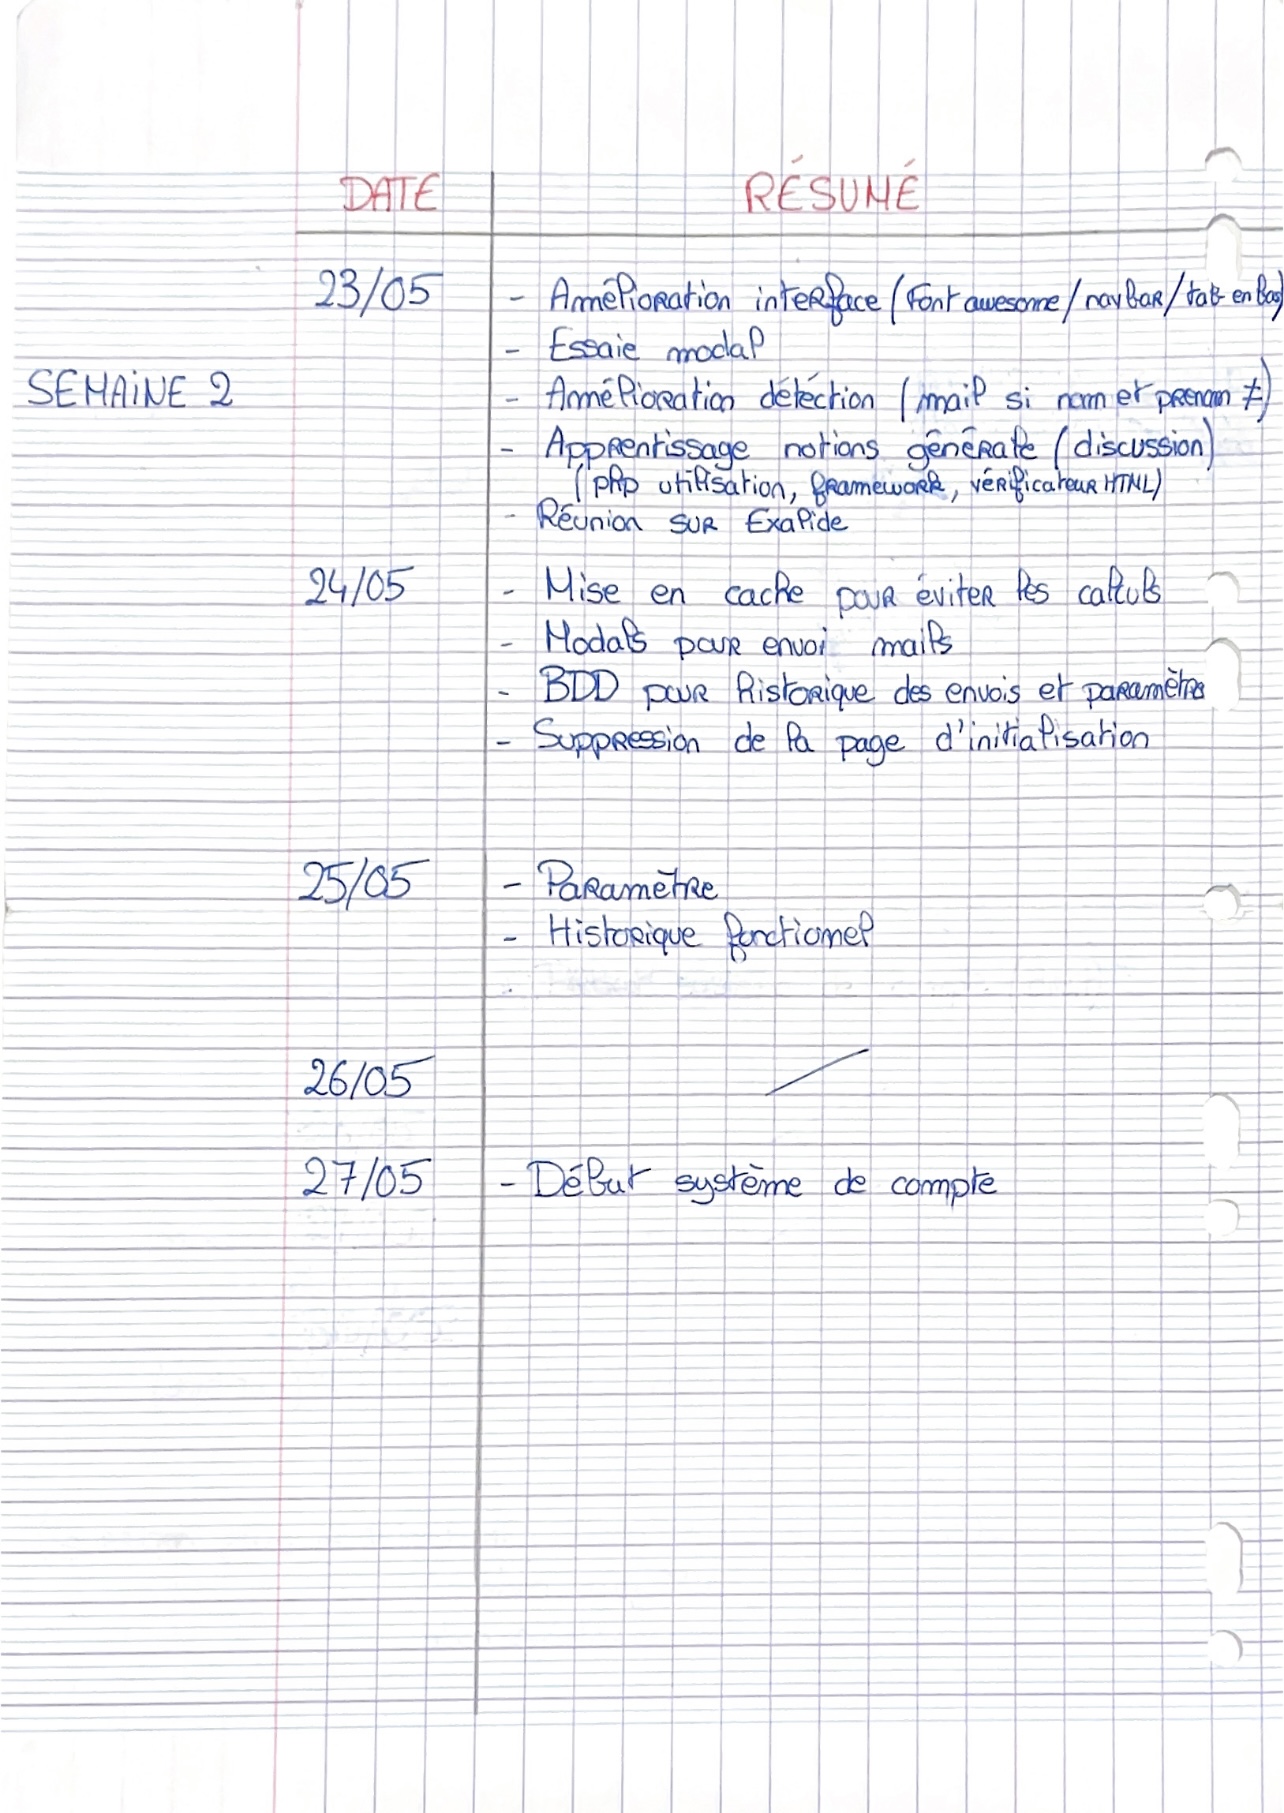 DATE RÉSUMÉ
23/05 - Amélioration interface (Font awesome / navbar / tab en bas)
- Essaie modal
SEMAINE 2 - Amélioration détéction (mail si nom et prenom ≠)
- Apprentissage notions générale (discussion)
(php utilisation, framework, vérificateur HTML)
- Réunion sur Exalide
24/05 - Mise en cache pour éviter les calculs
- Modals pour envoi mails
- BDD pour historique des envois et paramètre
- Suppression de la page d'initialisation
25/05 - Paramètre
- Historique fonctionel
26/05 /
27/05 - Début système de compte